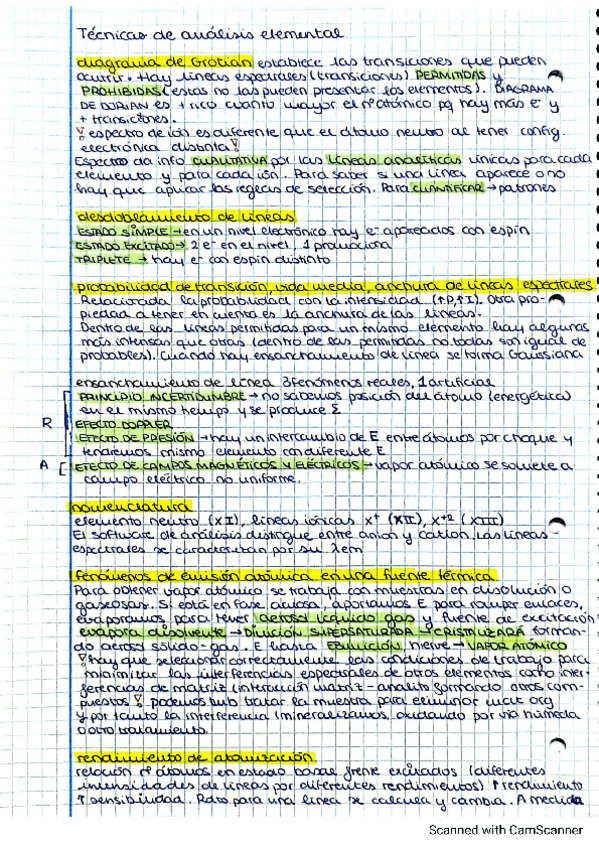 Técnicas de análisis elemental
diagrama de Grotian establece las transiciones que pueden
ocurrir. Hay líneas espectrales (transiciones) PERMITIDAS y
PROHIBIDAS (estas no las pueden presentar los elementos). DIAGRAMA
DE DORIAN es + rico cuanto mayor el nº atómico pq hay más e⁻ y
+ transiciones.
! espectro de ión es diferente que el átomo neutro al tener config.
electrónica distinta!
Espectro da info CUALITATIVA por las líneas analíticas únicas para cada
elemento y para cada ión. Para saber si una línea aparece o no
hay que aplicar las reglas de selección. Para CUANTIFICAR → patrones
desdoblamiento de líneas
ESTADO SIMPLE → en un nivel electrónico hay e⁻ apareados con espín
ESTADO EXCITADO → 2 e⁻ en el nivel, 1 promociona
TRIPLETE → hay e⁻ con espín distinto
probabilidad de transición, vida media, anchura de líneas espectrales
Relacionada la probabilidad con la intensidad (↑P,↑I). Otra pro-
piedad a tener en cuenta es la anchura de las líneas.
Dentro de las líneas permitidas para un mismo elemento hay algunas
más intensas que otras (dentro de las permitidas no todas son igual de
probables). Cuando hay ensanchamiento de línea se forma Gaussiana
ensanchamiento de línea 3 fenómenos reales, 1 artificial
PRINCIPIO INCERTIDUMBRE → no sabemos posición del átomo (energética)
en el mismo tiempo y se produce Σ
R EFECTO DOPPLER
EFECTO DE PRESIÓN → hay un intercambio de E entre átomos por choque y
tendremos mismo elemento con diferente E
A EFECTO DE CAMPOS MAGNÉTICOS Y ELÉCTRICOS → vapor atómico se somete a
campo eléctrico no uniforme.
nomenclatura
elemento neutro (X I), líneas iónicas X⁺ (XII), X⁺² (XIII)
El software de análisis distingue entre anion y catión, las líneas
espectrales se caracterizan por su λem
fenómenos de emisión atómica en una fuente térmica
Para obtener vapor atómico se trabaja con muestras en disolución o
gaseosas. Si está en fase acuosa, aportamos E para romper enlaces,
evaporamos para tener aerosol líquido gas y fuente de excitación
evapora disolvente → DILUCIÓN SUPERSATURADA → CRISTALIZARÁ forman-
do aerosol sólido-gas. E hasta EBULLICIÓN, hierve → VAPOR ATÓMICO
! hay que seleccionar correctamente las condiciones de trabajo para
minimizar las interferencias espectrales de otros elementos como inter-
ferencias de matriz (interacción matriz-analito formando otros com-
puestos ! podemos tratar la muestra para eliminar mat org
y por tanto la interferencia (mineralizamos, oxidando por vía húmeda
o otro tratamiento.
rendimiento de atomización
relación nº átomos en estado basal frente excitados (diferentes
intensidades de líneas por diferentes rendimientos) ↑ rendimiento
↑ sensibilidad. Rdto para una línea se calcula y cambia. A medida
Scanned with CamScanner